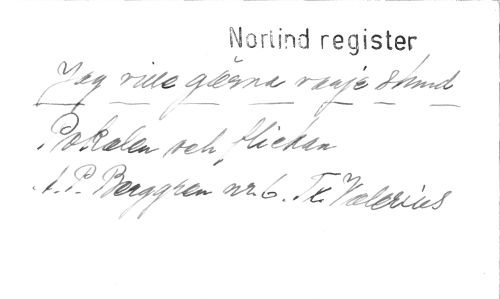 Norlind register
Jag ville gärna varje stund
Pokalen och flickan
A.P. Berggren nr. 6. Tr. Valerius